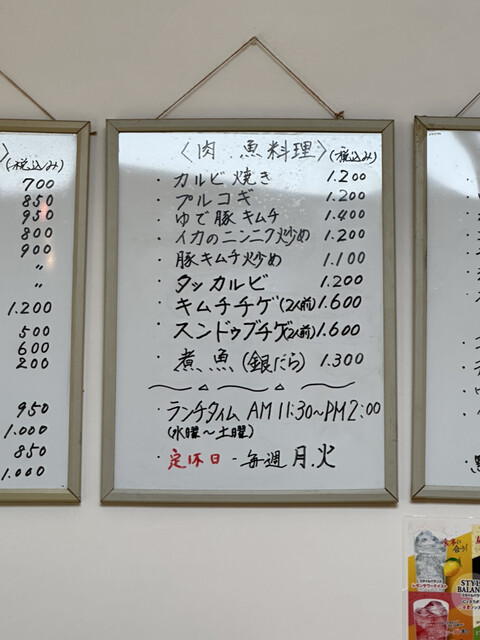 (税込み)
700
850
950
800
900
〃
〃
1.200
500
600
200
950
1.000
850
1.000
〈肉.魚料理〉(税込み)
・カルビ焼き 1.200
・プルコギ 1.200
・ゆで豚キムチ 1.400
・イカのニンニク炒め 1.200
・豚キムチ炒め 1.100
・タッカルビ 1.200
・キムチチゲ(2人前) 1.600
・スンドゥブチゲ(2人前) 1.600
・煮魚(銀だら) 1.300
・ランチタイム AM 11:30〜PM 2:00
(水曜〜土曜)
・定休日 - 毎週 月.火
STYLE
BALANCE